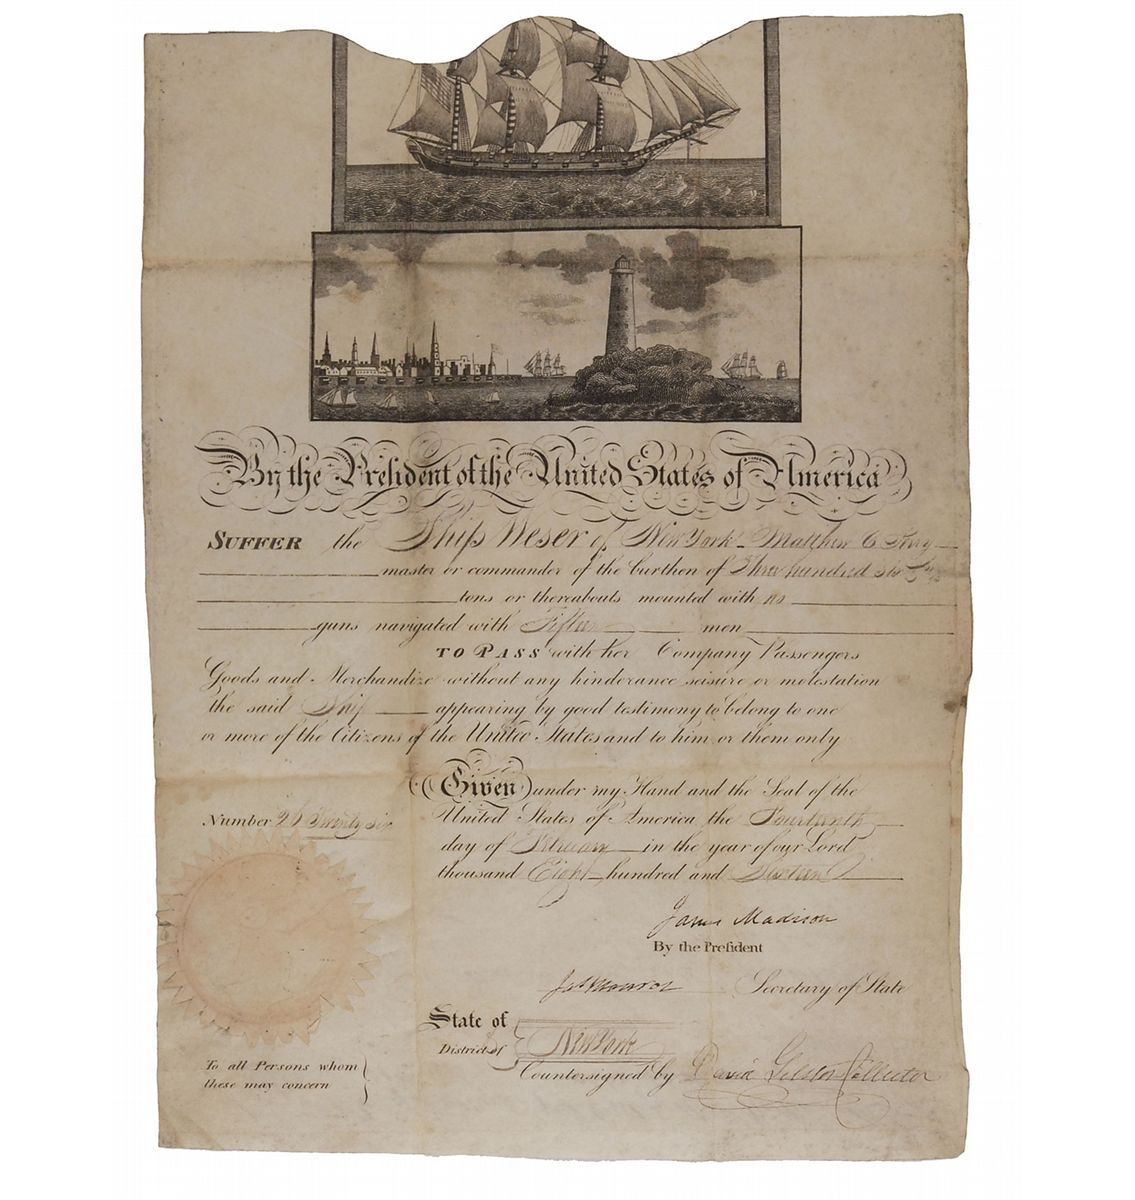 By the President of the United States of America
SUFFER the Ship Weser of New York Matthew C Perry
master or commander of the burthen of Three hundred
tons or thereabouts mounted with no
guns navigated with Fifteen men
TO PASS with her Company Passengers
Goods and Merchandize without any hinderance seisure or molestation
the said Ship appearing by good testimony to belong to one
or more of the Citizens of the United States and to him or them only
Given under my Hand and the Seal of the
United States of America the Fourteenth
Number 26 Twenty six
day of February in the year of our Lord
thousand Eight hundred and Sixteen
James Madison
By the President
Jas Monroe Secretary of State
State of
District of } New York
Countersigned by David Gelston Collector
To all Persons whom
these may concern }